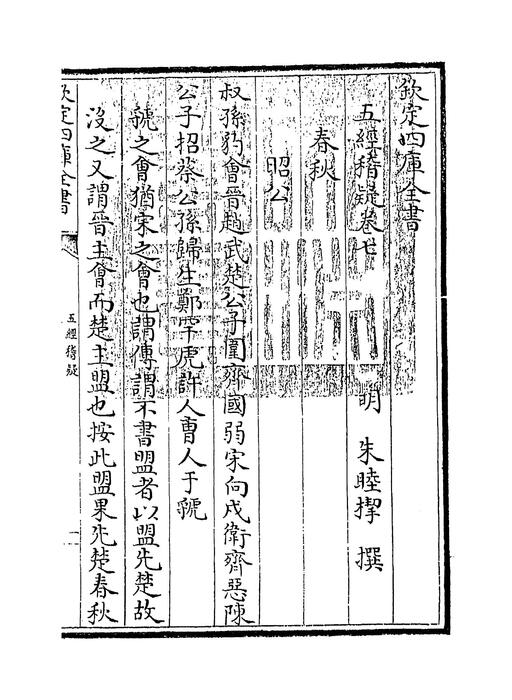 欽定四庫全書
五經稽疑卷七
明 朱睦㮮 撰
春秋
昭公
叔孫豹會晉趙武楚公子圍齊國弱宋向戌衛齊惡陳
公子招蔡公孫歸生鄭罕虎許人曹人于虢
虢之會猶宋之會也謂傳謂不書盟者以盟先楚故
沒之又謂晉主會而楚主盟也按此盟果先楚春秋
欽定四庫全書
五經稽疑
一